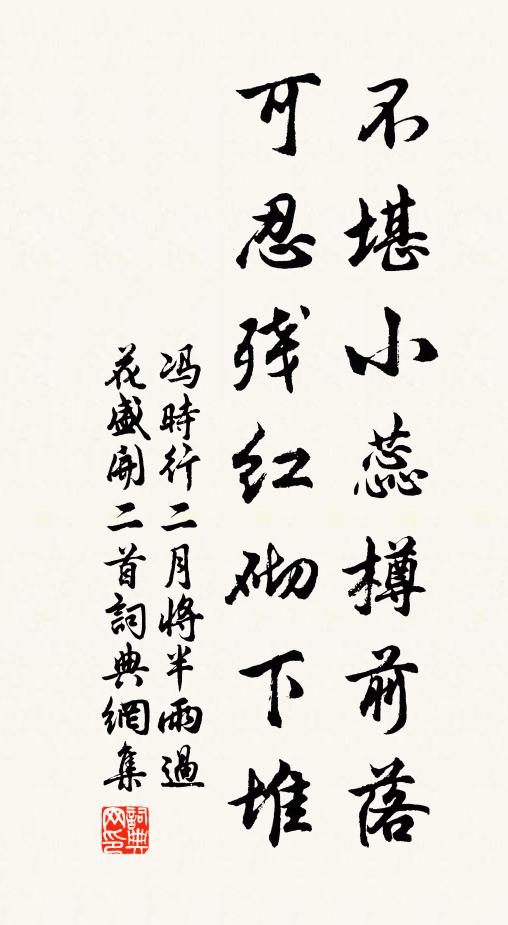 不堪小蕊樽前落
可忍残红砌下堆
冯時行二月将半雨過
花盛開二首詞典網集
詞典网印